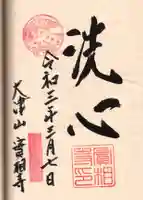 洗心
令和三年三月七日
大津山 實相寺
實相寺印